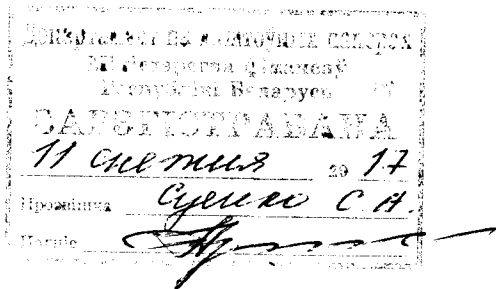 Дэпартамент па каштоўных паперах
Міністэрства фінансаў
Рэспублікі Беларусь
ЗАРЭГІСТРАВАНА
11 снежня 20 17
Прозвішча Суенко С.Н.
Подпіс